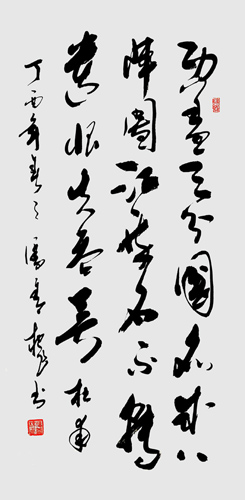 功盖三分國名成八
陣圖江流石不轉
遺恨失吞吴 杜甫
丁酉年春 书